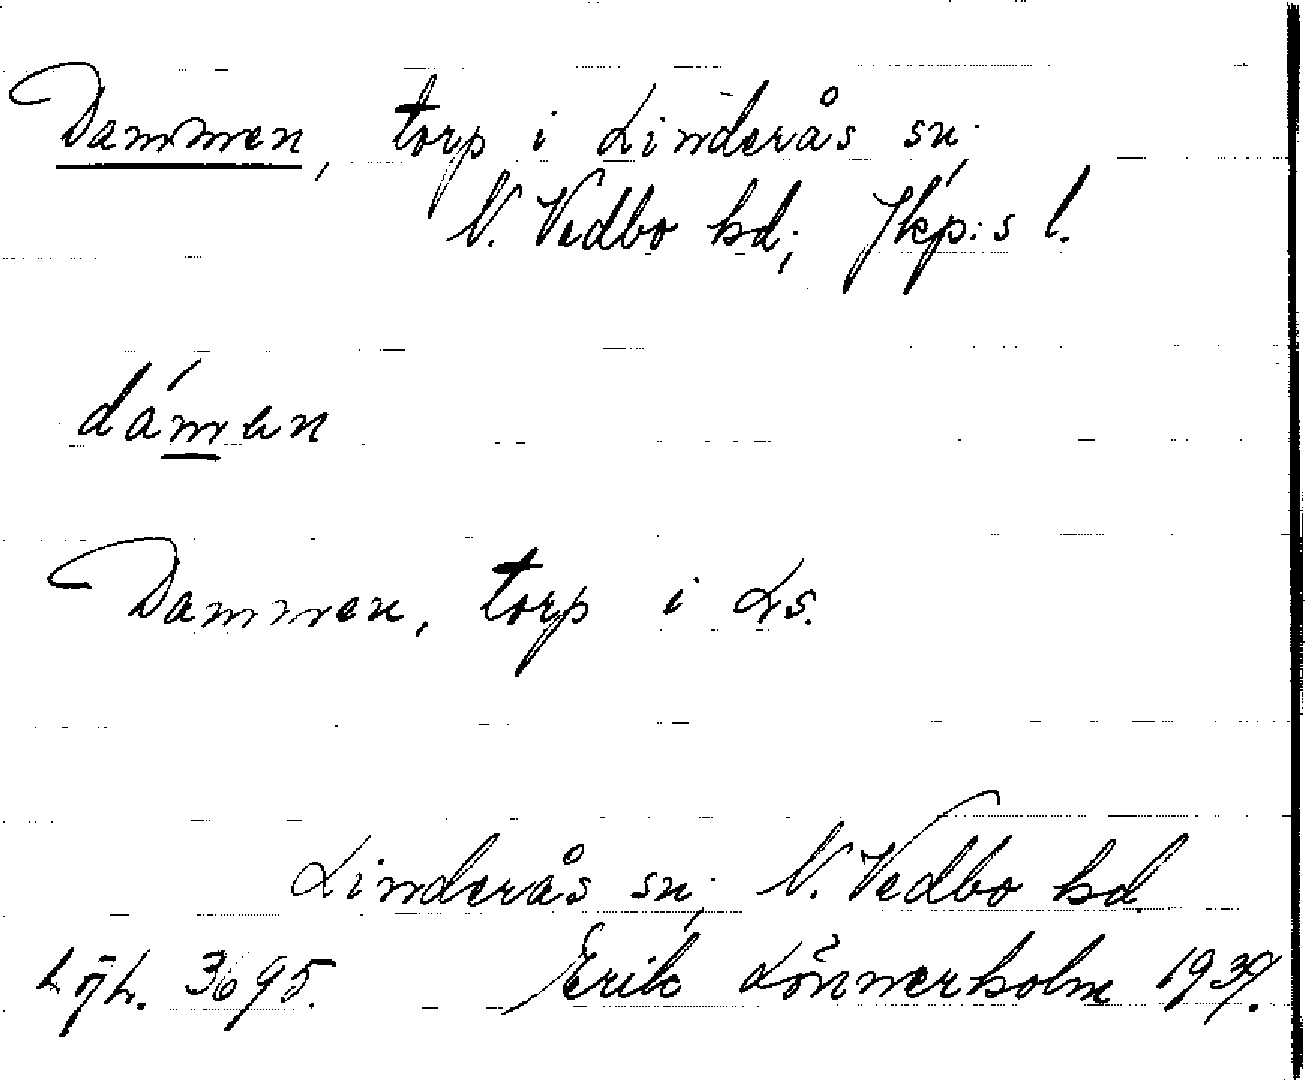 Dammen, torp i Linderås sn;
N. Vedbo hd; Jkp:s l.
dámen
Dammen, torp i Ls.
Linderås sn; N. Vedbo hd.
3695. Erik Lönnerholm 1939.